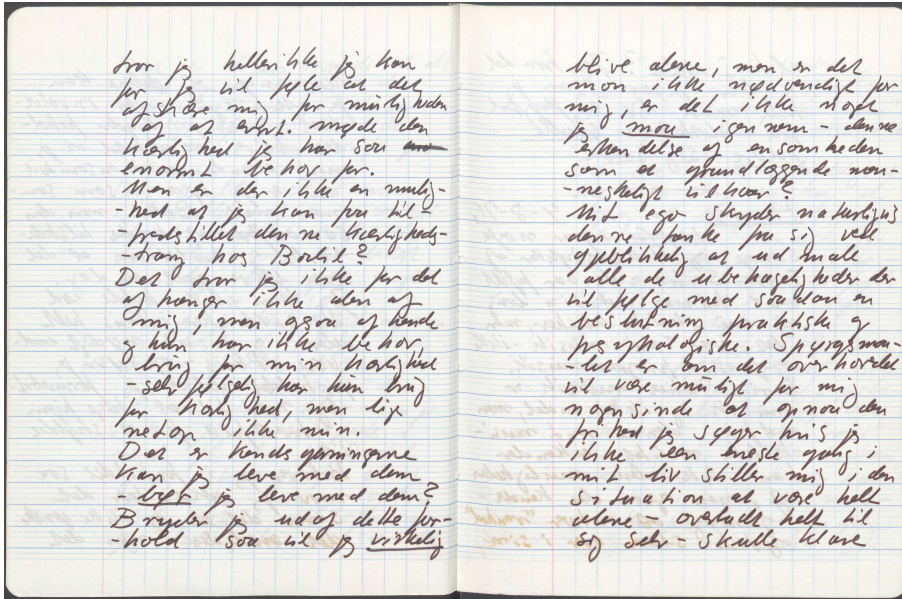 tror jeg hellerikke jeg kan
for jeg vil føle at det
afskære mig for muligheden
af at evnt. møde den
kærlighed jeg har saa
enormt behov for.
Men er der ikke en mulig-
-hed at jeg kan faa til-
-fredsstillet denne kærligheds-
-trang hos Bodil?
Det tror jeg ikke for det
afhænger ikke alen af
mig, men ogsaa af hende
og hun har ikke behov,
brug for min kærlighed
-selvfølgelig har hun brug
for kærlighed, men lige
netop ikke min.
Det er kendsgerningerne
kan jeg leve med dem
- bør jeg leve med dem?
Bryder jeg ud af dette for-
-hold saa vil jeg virkelig
blive alene, men er det
mon ikke nødvendigt for
mig, er det ikke noget
jeg maa igennem - denne
erkendelse af ensomheden
som et grundlæggende men-
-neskeligt vilkaar?
Mit ego skyder naturligvis
denne tanke fra sig ved
øjeblikkelig at udmale
alle de ubehageligheder der
vil følge med saadan en
beslutning praktiske og
psykologiske. Spørgsmaa-
-let er om det overhovedet
vil være muligt for mig
nogensinde at opnaa den
frihed jeg søger hvis jeg
ikke een eneste gang i
mit liv stiller mig i den
situation at være helt
alene - overladt helt til
sig selv - skulle klare